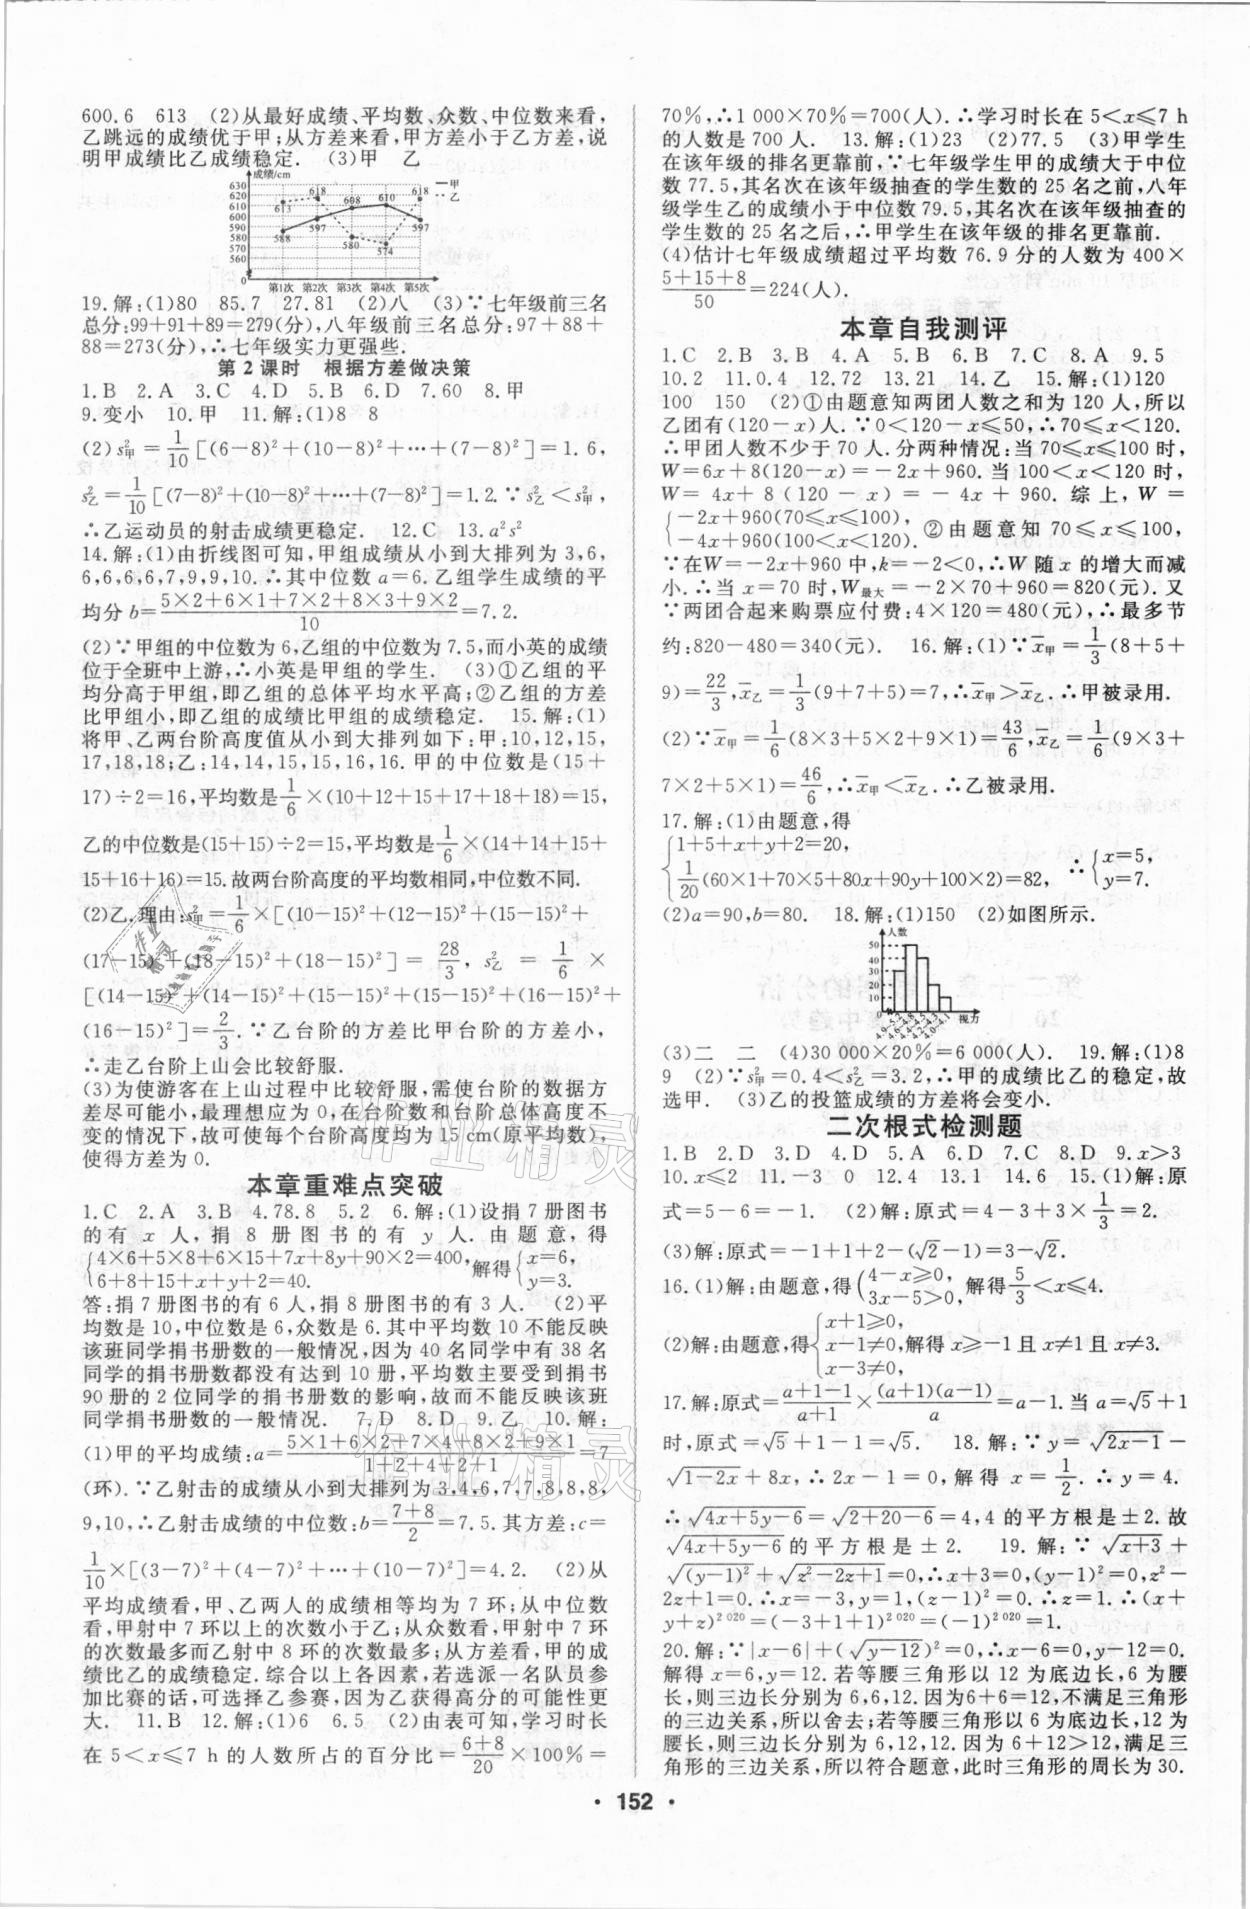 600.6　613　(2)从最好成绩、平均数、众数、中位数来看,
乙跳远的成绩优于甲;从方差来看,甲方差小于乙方差,说
明甲成绩比乙成绩稳定.　(3)甲　乙
成绩/cm
630
620
610
600
590
580
570
560
0
613
618
608
610
618
588
597
580
574
597
甲
乙
第1次 第2次 第3次 第4次 第5次
19.解:(1)80　85.7　27.81　(2)八　(3)∵七年级前三名
总分:99+91+89=279(分),八年级前三名总分:97+88+
88=273(分),∴七年级实力更强些.
第2课时　根据方差做决策
1.B　2.A　3.C　4.D　5.B　6.D　7.60　8.甲
9.变小　10.甲　11.解:(1)8　8
(2)s²甲=1/10[(6-8)²+(10-8)²+⋯+(7-8)²]=1.6,
s²乙=1/10[(7-8)²+(10-8)²+⋯+(7-8)²]=1.2.∵s²乙<s²甲,
∴乙运动员的射击成绩更稳定.　12.C　13.a²s²
14.解:(1)由折线图可知,甲组成绩从小到大排列为3,6,
6,6,6,6,7,9,9,10.∴其中位数a=6.乙组学生成绩的平
均分b=(5×2+6×1+7×2+8×3+9×2)/10=7.2.
(2)∵甲组的中位数为6,乙组的中位数为7.5,而小英的成绩
位于全班中上游,∴小英是甲组的学生.　(3)①乙组的平
均分高于甲组,即乙组的总体平均水平高;②乙组的方差
比甲组小,即乙组的成绩比甲组的成绩稳定.　15.解:(1)
将甲、乙两台阶高度值从小到大排列如下:甲:10,12,15,
17,18,18;乙:14,14,15,15,16,16.甲的中位数是(15+
17)÷2=16,平均数是1/6×(10+12+15+17+18+18)=15,
乙的中位数是(15+15)÷2=15,平均数是1/6×(14+14+15+
15+16+16)=15.故两台阶高度的平均数相同,中位数不同.
(2)乙.理由:s²甲=1/6×[(10-15)²+(12-15)²+(15-15)²+
(17-15)²+(18-15)²+(18-15)²]=28/3,s²乙=1/6×
[(14-15)²+(14-15)²+(15-15)²+(15-15)²+(16-15)²+
(16-15)²]=2/3.∵乙台阶的方差比甲台阶的方差小,
∴走乙台阶上山会比较舒服.
(3)为使游客在上山过程中比较舒服,需使台阶的数据方
差尽可能小,最理想应为0,在台阶数和台阶总体高度不
变的情况下,故可使每个台阶高度均为15 cm(原平均数),
使得方差为0.
本章重难点突破
1.C　2.A　3.B　4.78.8　5.2　6.解:(1)设捐7册图书
的有x人,捐8册图书的有y人.由题意,得
{4×6+5×8+6×15+7x+8y+90×2=400, 解得{x=6,
6+8+15+x+y+2=40. y=3.
答:捐7册图书的有6人,捐8册图书的有3人.　(2)平
均数是10,中位数是6,众数是6.其中平均数10不能反映
该班同学捐书册数的一般情况,因为40名同学中有38名
同学的捐书册数都没有达到10册,平均数主要受到捐书
90册的2位同学的捐书册数的影响,故而不能反映该班
同学捐书册数的一般情况.　7.D　8.D　9.乙　10.解:
(1)甲的平均成绩:a=(5×1+6×2+7×4+8×2+9×1)/(1+2+4+2+1)=7
(环).∵乙射击的成绩从小到大排列为3,4,6,7,7,8,8,8,
9,10,∴乙射击成绩的中位数:b=(7+8)/2=7.5.其方差:c=
1/10×[(3-7)²+(4-7)²+⋯+(10-7)²]=4.2.　(2)从
平均成绩看,甲、乙两人的成绩相等均为7环;从中位数
看,甲射中7环以上的次数小于乙;从众数看,甲射中7环
的次数最多而乙射中8环的次数最多;从方差看,甲的成
绩比乙的成绩稳定.综合以上各因素,若选派一名队员参
加比赛的话,可选择乙参赛,因为乙获得高分的可能性更
大.　11.B　12.解:(1)6　6.5　(2)由表可知,学习时长
在5<x≤7 h的人数所占的百分比=(6+8)/20×100%=
70%,∴1 000×70%=700(人).∴学习时长在5<x≤7 h
的人数是700人.　13.解:(1)23　(2)77.5　(3)甲学生
在该年级的排名更靠前,∵七年级学生甲的成绩大于中位
数77.5,其名次在该年级抽查的学生数的25名之前,八年
级学生乙的成绩小于中位数79.5,其名次在该年级抽查的
学生数的25名之后,∴甲学生在该年级的排名更靠前.
(4)估计七年级成绩超过平均数76.9分的人数为400×
(5+15+8)/50=224(人).
本章自我测评
1.C　2.B　3.B　4.A　5.B　6.B　7.C　8.A　9.5
10.2　11.0.4　12.72　13.21　14.乙　15.解:(1)120
100　150　(2)①由题意知两团人数之和为120人,所以
乙团有(120-x)人.∵0<120-x≤50,∴70≤x<120.
∴甲团人数不少于70人.分两种情况:当70≤x≤100时,
W=6x+8(120-x)=-2x+960.当100<x<120时,
W=4x+8(120-x)=-4x+960.综上,W=
{-2x+960(70≤x≤100),
-4x+960(100<x<120). ②由题意知70≤x≤100,
∵在W=-2x+960中,k=-2<0,∴W随x的增大而减
小.∴当x=70时,W最大=-2×70+960=820(元).又
∵两团合起来购票应付费:4×120=480(元),∴最多节
约:820-480=340(元).　16.解:(1)∵x̄甲=1/3(8+5+
9)=22/3,x̄乙=1/3(9+7+5)=7,∴x̄甲>x̄乙.∴甲被录用.
(2)∵x̄甲=1/6(8×3+5×2+9×1)=43/6,x̄乙=1/6(9×3+
7×2+5×1)=46/6,∴x̄甲<x̄乙.∴乙被录用.
17.解:(1)由题意,得
{1+5+x+y+2=20,
1/20(60×1+70×5+80x+90y+100×2)=82, ∴{x=5,
y=7.
(2)a=90,b=80.　18.解:(1)150　(2)如图所示.
人数
50
40
30
20
10
0
视力
(3)二　二　(4)30 000×20%=6 000(人).　19.解:(1)8
9　(2)∵s²甲=0.4<s²乙=3.2,∴甲的成绩比乙的稳定,故
选甲.　(3)乙的投篮成绩的方差将会变小.
二次根式检测题
1.B　2.D　3.D　4.D　5.A　6.D　7.C　8.D　9.x>3
10.x≤2　11.-3　0　12.4　13.1　14.6　15.(1)解:原
式=5-6=-1.　(2)解:原式=4-3+3×1/3=2.
(3)解:原式=-1+1+2-(√2-1)=3-√2.
16.(1)解:由题意,得{4-x≥0,
3x-5>0, 解得5/3<x≤4.
(2)解:由题意,得{x+1≥0,
x-1≠0,解得x≥-1且x≠1且x≠3.
x-3≠0,
17.解:原式=(a+1-1)/(a+1)×((a+1)(a-1))/a=a-1.当a=√5+1
时,原式=√5+1-1=√5.　18.解:∵y=√(2x-1)-
√(1-2x)+8x,∴2x-1=0,解得x=1/2.∴y=4.
∴√(4x+5y-6)=√(2+20-6)=4,4的平方根是±2.故
√(4x+5y-6)的平方根是±2.　19.解:∵√(x+3)+
√((y-1)²)+√(z²-2z+1)=0,∴x+3=0,(y-1)²=0,z²-
2z+1=0.∴x=-3,y=1,(z-1)²=0.∴z=1.∴(x+
y+z)²⁰²⁰=(-3+1+1)²⁰²⁰=(-1)²⁰²⁰=1.
20.解:∵|x-6|+(√(y-12))²=0,∴x-6=0,y-12=0.
解得x=6,y=12.若等腰三角形以12为底边长,6为腰
长,则三边长分别为6,6,12.因为6+6=12,不满足三角形
的三边关系,所以舍去;若等腰三角形以6为底边长,12为
腰长,则三边长分别为6,12,12.因为6+12>12,满足三
角形的三边关系,所以符合题意,此时三角形的周长为30.
· 152 ·
作业精灵
作业精灵